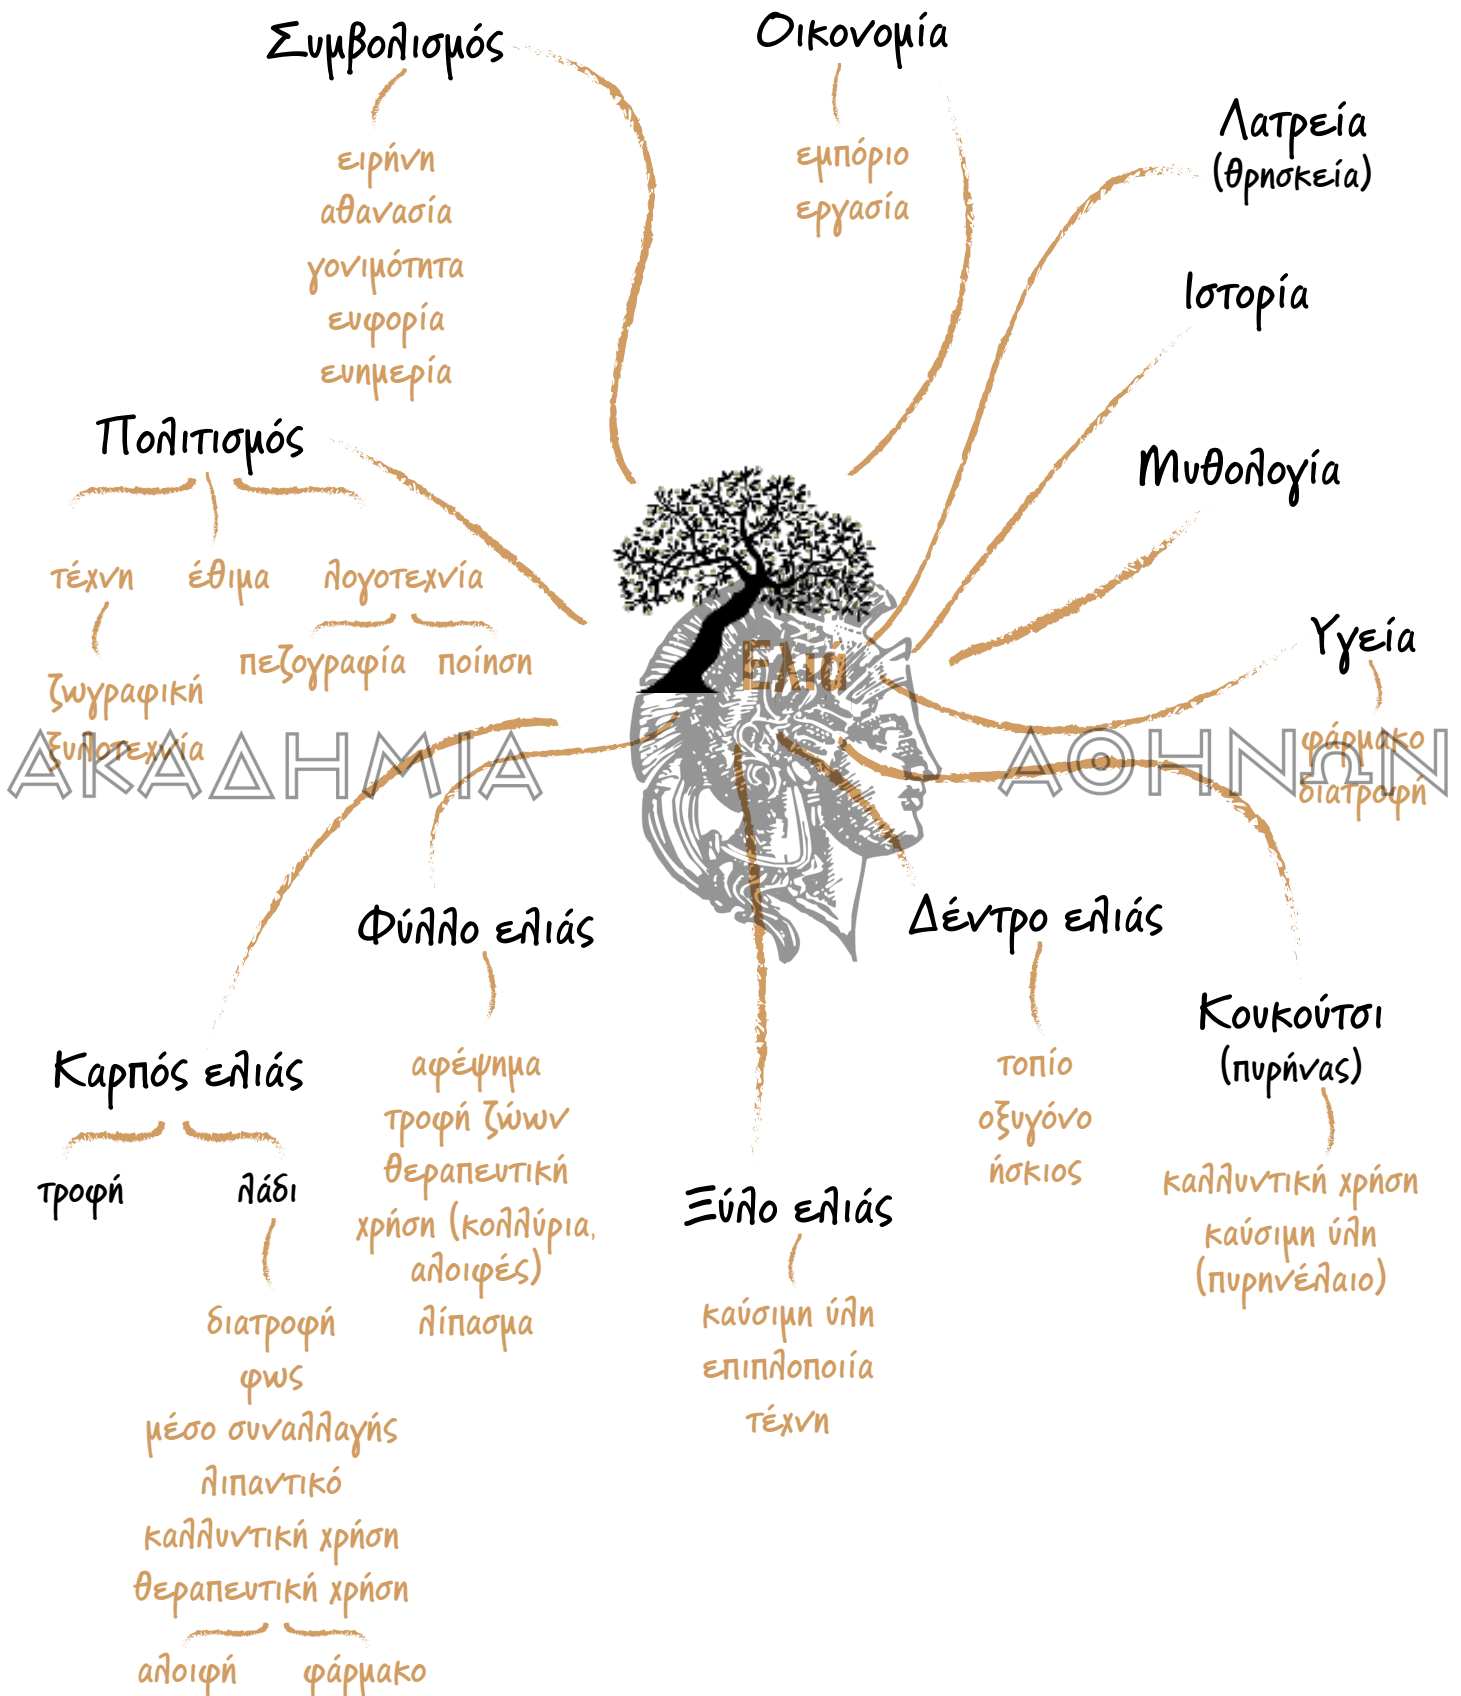 Συμβολισμός
ειρήνη
αθανασία
γονιμότητα
ευφορία
ευημερία
Οικονομία
εμπόριο
εργασία
Λατρεία
(θρησκεία)
Ιστορία
Μυθολογία
Υγεία
φάρμακο
διατροφή
Πολιτισμός
τέχνη έθιμα λογοτεχνία
πεζογραφία ποίηση
ζωγραφική
ξυλοτεχνία
Ελιά
ΑΚΑΔΗΜΙΑ ΑΘΗΝΩΝ
Φύλλο ελιάς
αφέψημα
τροφή ζώων
θεραπευτική
χρήση (κολλύρια,
αλοιφές)
λίπασμα
Δέντρο ελιάς
τοπίο
οξυγόνο
ήσκιος
Κουκούτσι
(πυρήνας)
καλλυντική χρήση
καύσιμη ύλη
(πυρηνέλαιο)
Καρπός ελιάς
τροφή λάδι
διατροφή
φως
μέσο συναλλαγής
λιπαντικό
καλλυντική χρήση
θεραπευτική χρήση
αλοιφή φάρμακο
Ξύλο ελιάς
καύσιμη ύλη
επιπλοποιία
τέχνη